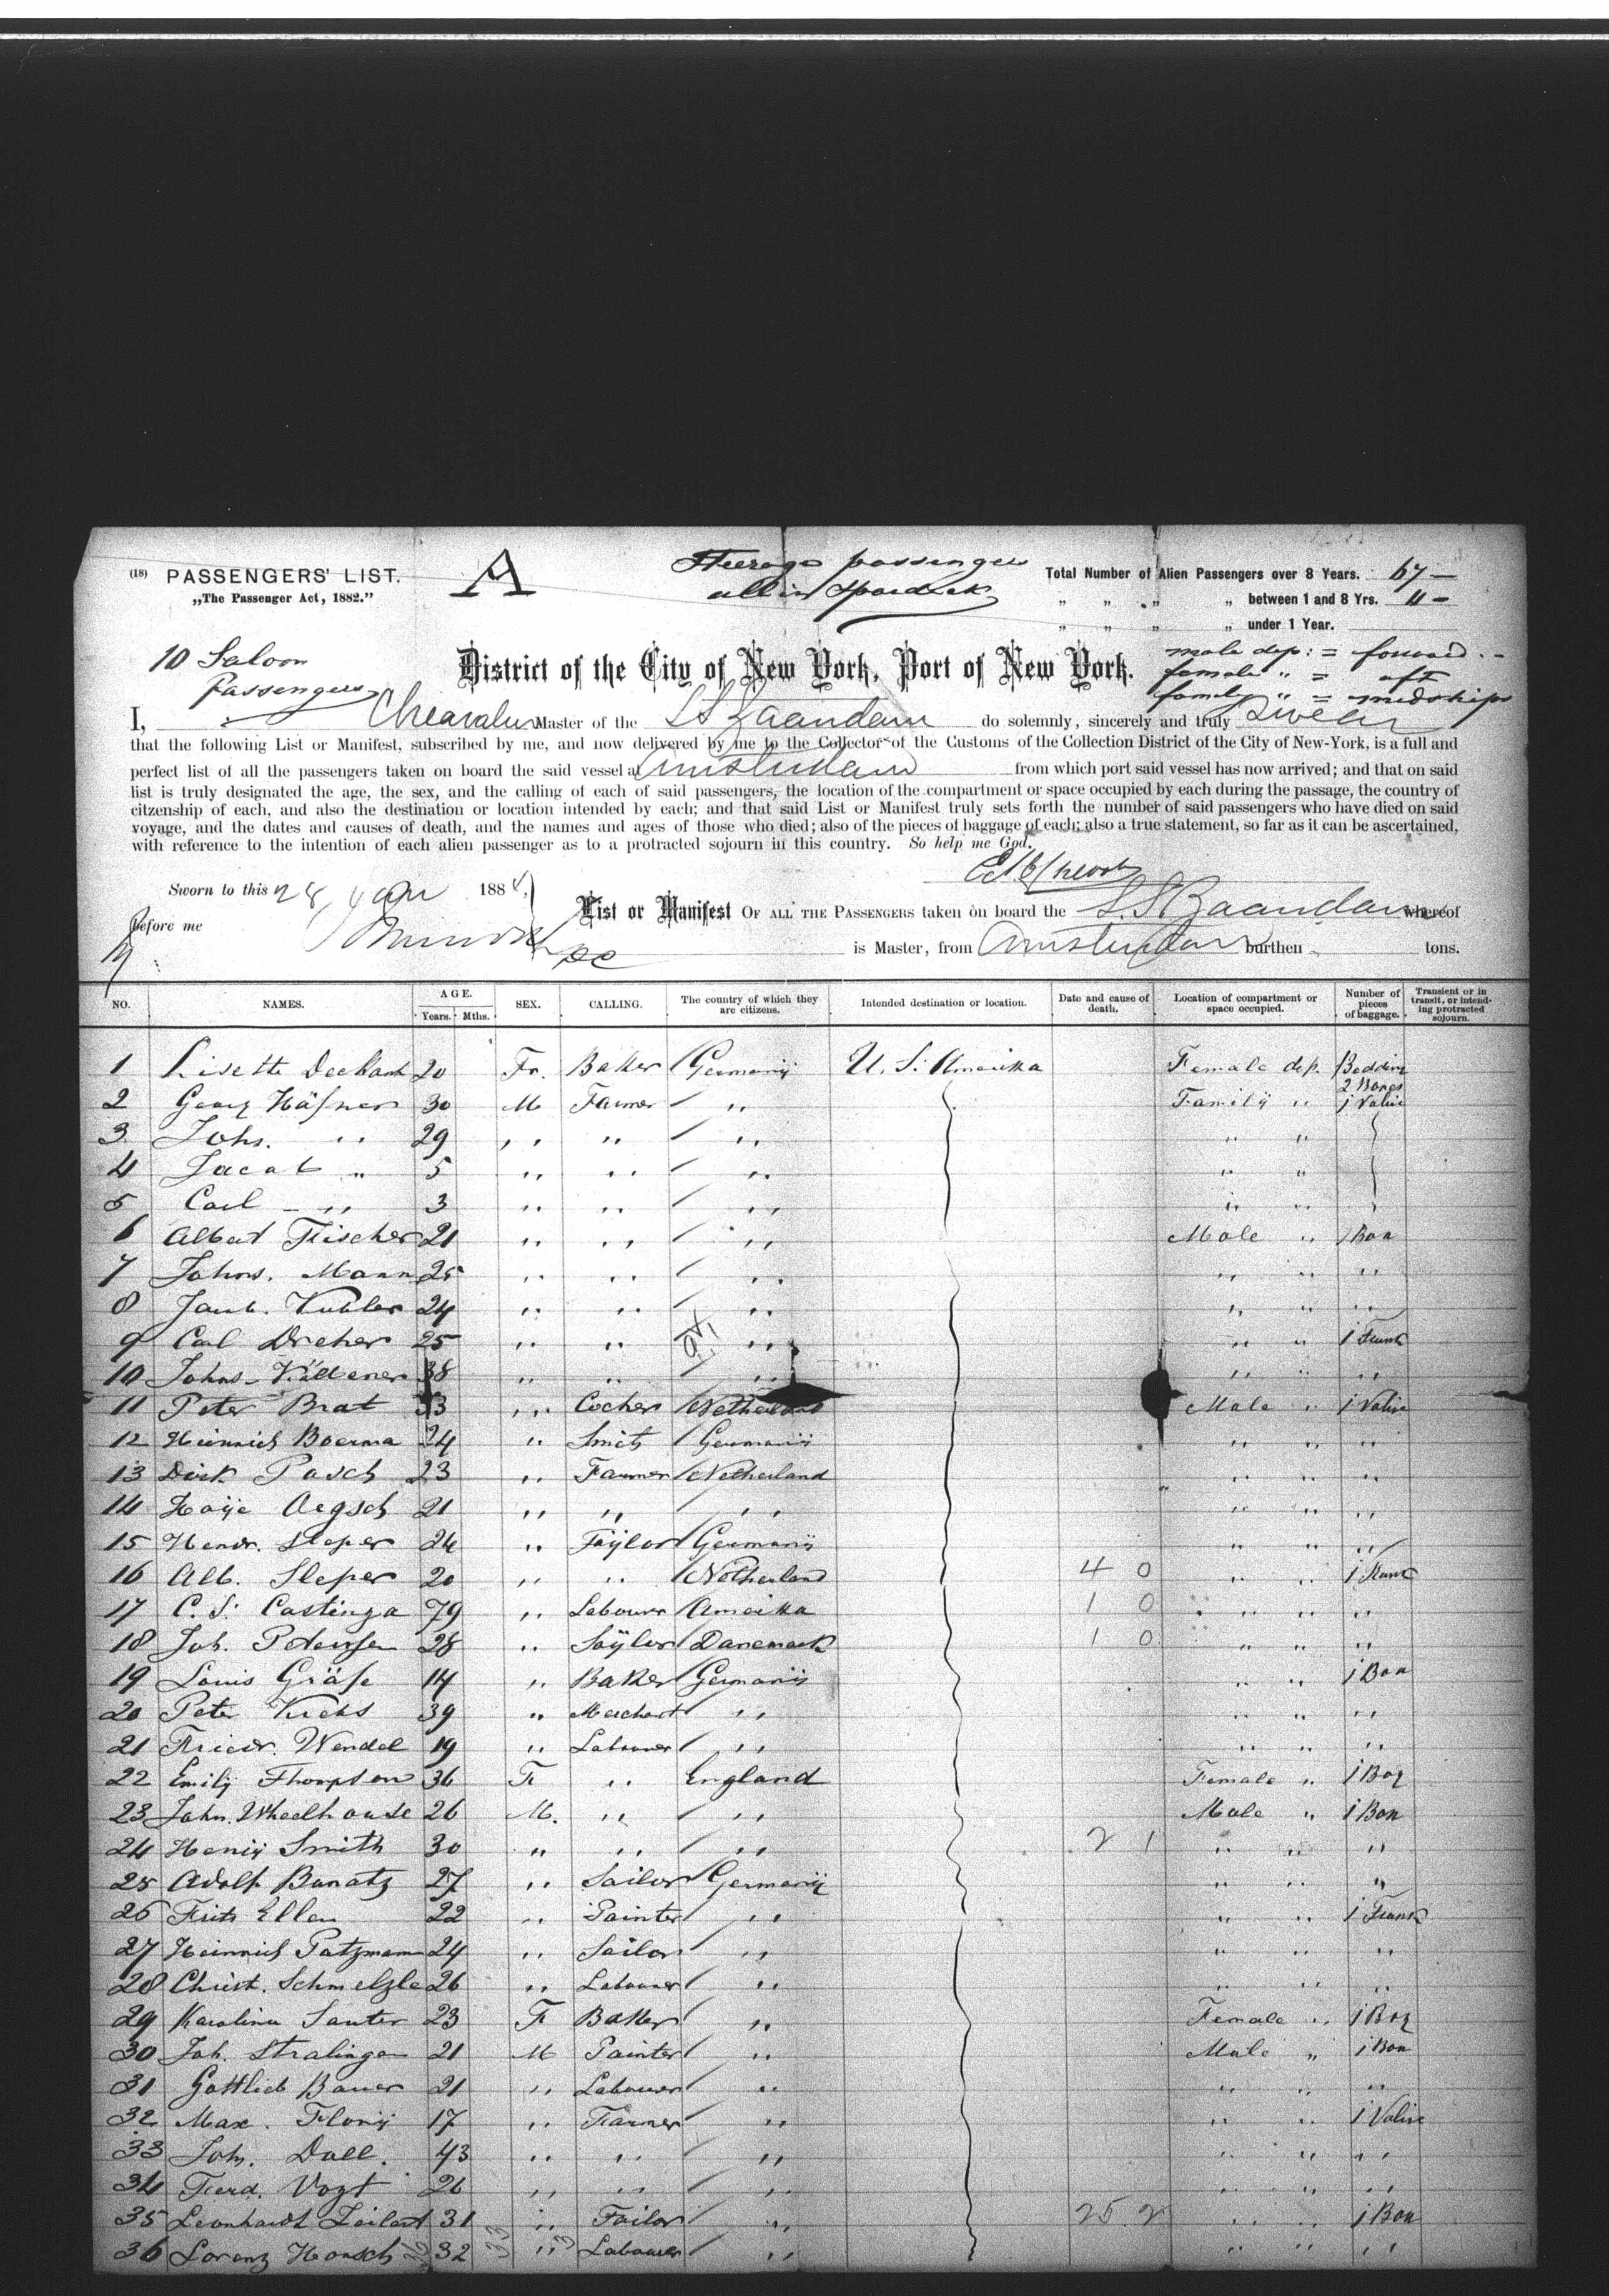 (18) PASSENGERS' LIST.
„The Passenger Act, 1882."
A
Steerage passengers
all in
Total Number of Alien Passengers over 8 Years. 67 —
„ „ „ „ between 1 and 8 Yrs. 11 —
„ „ „ „ under 1 Year.
10 Saloon
Passengers
male dep: = forward. -
female „ = aft
family „ = midships
District of the City of New York, Port of New York.
I, Master of the SS Zaandam do solemnly, sincerely and truly swear
that the following List or Manifest, subscribed by me, and now delivered by me to the Collector of the Customs of the Collection District of the City of New-York, is a full and
perfect list of all the passengers taken on board the said vessel at Amsterdam from which port said vessel has now arrived; and that on said
list is truly designated the age, the sex, and the calling of each of said passengers, the location of the compartment or space occupied by each during the passage, the country of
citzenship of each, and also the destination or location intended by each; and that said List or Manifest truly sets forth the number of said passengers who have died on said
voyage, and the dates and causes of death, and the names and ages of those who died; also of the pieces of baggage of each; also a true statement, so far as it can be ascertained,
with reference to the intention of each alien passenger as to a protracted sojourn in this country. So help me God.
Sworn to this 28 Jan 1884,
Before me
List or Manifest OF ALL THE PASSENGERS taken on board the S.S. Zaandam whereof
is Master, from Amsterdam burthen tons.
NO. NAMES. AGE. Years. Mths. SEX. CALLING. The country of which they are citizens. Intended destination or location. Date and cause of death. Location of compartment or space occupied. Number of pieces of baggage. Transient or in transit, or intending protracted sojourn.
1 Lisette Dechant 20 Fr. Baker Germanij U. S. Amerika Female dep. Bedding
2 Georg Häfner 30 M Farmer „ Family „ 2 Boxes 1 Valise
3 Johs. „ 29 „ „ „ „ „
4 Jacob „ 5 „ „ „ „ „
5 Carl „ 3 „ „ „ „ „
6 Albert Fischer 21 „ „ „ Male „ 1 Box
7 Johns. Mann 25 „ „ „ „ „ „
8 Jacob. Kubler 24 „ „ „ „ „ „
9 Carl Dreher 25 „ „ „ „ „ 1 Trunk
10 Johns 38 „ „ „ „ „ „
11 Peter Brat 33 „ Cocher Netherland Male „ 1 Valise
12 Heinrich Boerma 24 „ Smith Germanij „ „ „
13 Dirk Pasch 23 „ Farmer Netherland „ „ „
14 Haije Aegsch 21 „ „ „ „ „ „
15 Hendr. Sleper 24 „ Taylor Germanij „ „ „
16 Alb. Sleper 20 „ „ Netherland 4 0 „ „ 1 Trunk
17 C. S. Castinga 79 „ Labourer Amerika 1 0 „ „ „
18 Joh. Petersen 28 „ Saylor Danemark 1 0 „ „ „
19 Louis Gräfe 14 „ Baker Germanij „ „ 1 Box
20 Peter Krebs 39 „ Merchant „ „ „ „
21 Friedr. Wendel 19 „ Labourer „ „ „ „
22 Emily Thompson 36 F „ England Female „ 1 Box
23 John. Wheelhouse 26 M. „ „ Male „ 1 Box
24 Henrij Smith 30 „ „ „ 2 1 „ „ „
25 Adolf Banatz 27 „ Sailor Germanij „ „ „
26 Frits Ellen 22 „ Painter „ „ „ 1 Trunk
27 Heinrich Patzmann 24 „ Sailor „ „ „ „
28 Christ. Schmelzle 26 „ Labourer „ „ „ „
29 Karolina Sauter 23 F Baker „ Female „ 1 Box
30 Joh. Stralinger 21 M Painter „ Male „ 1 Box
31 Gottlieb Bauer 21 „ Labourer „ „ „ „
32 Max. Florij 17 „ Farmer „ „ „ 1 Valise
33 Joh. Dall. 43 „ „ „ „ „ „
34 Ferd. Vogt 26 „ „ „ „ „ „
35 Leonhardt 31 „ Tailor „ 25 2 „ „ 1 Box
36 Lorenz Horsch 32 „ Labourer „ „ „ „